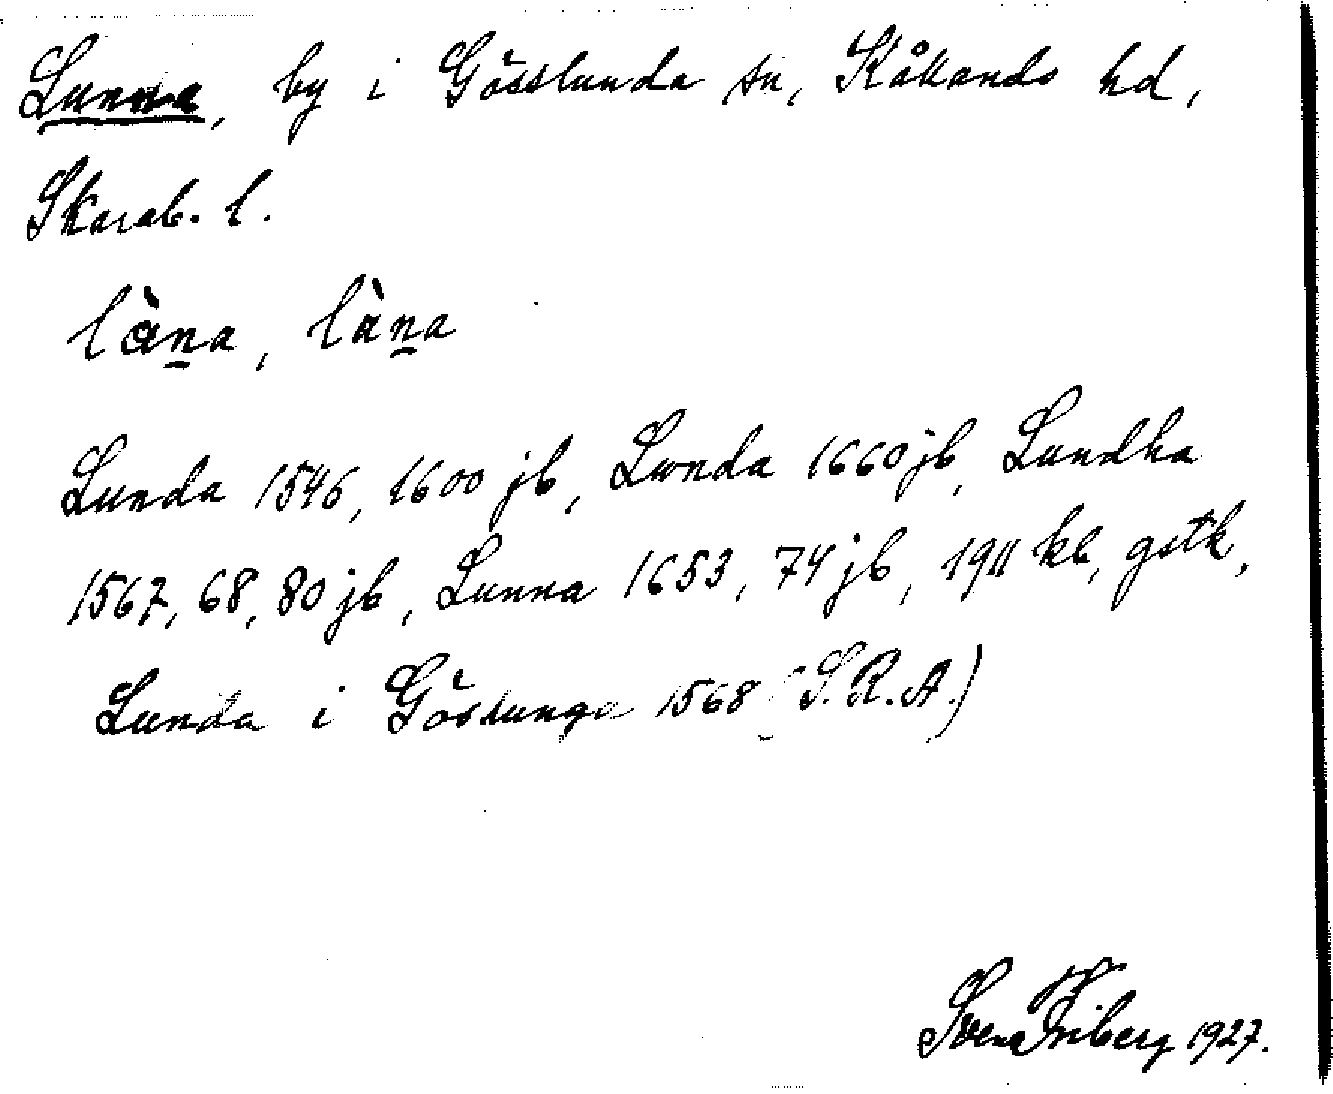 Lunna, by i Gösslunda sn, Kållands hd,
Skarab. l.
làn̲a, làn̲a
Lunda 1546, 1600 jb, Lwnda 1660 jb, Lundha
1567, 68, 80 jb, Lunna 1653, 74 jb, 1911 kb, gstk,
Lunda i Göslunga 1568 (S.R.A.)
Sven Friberg 1927.